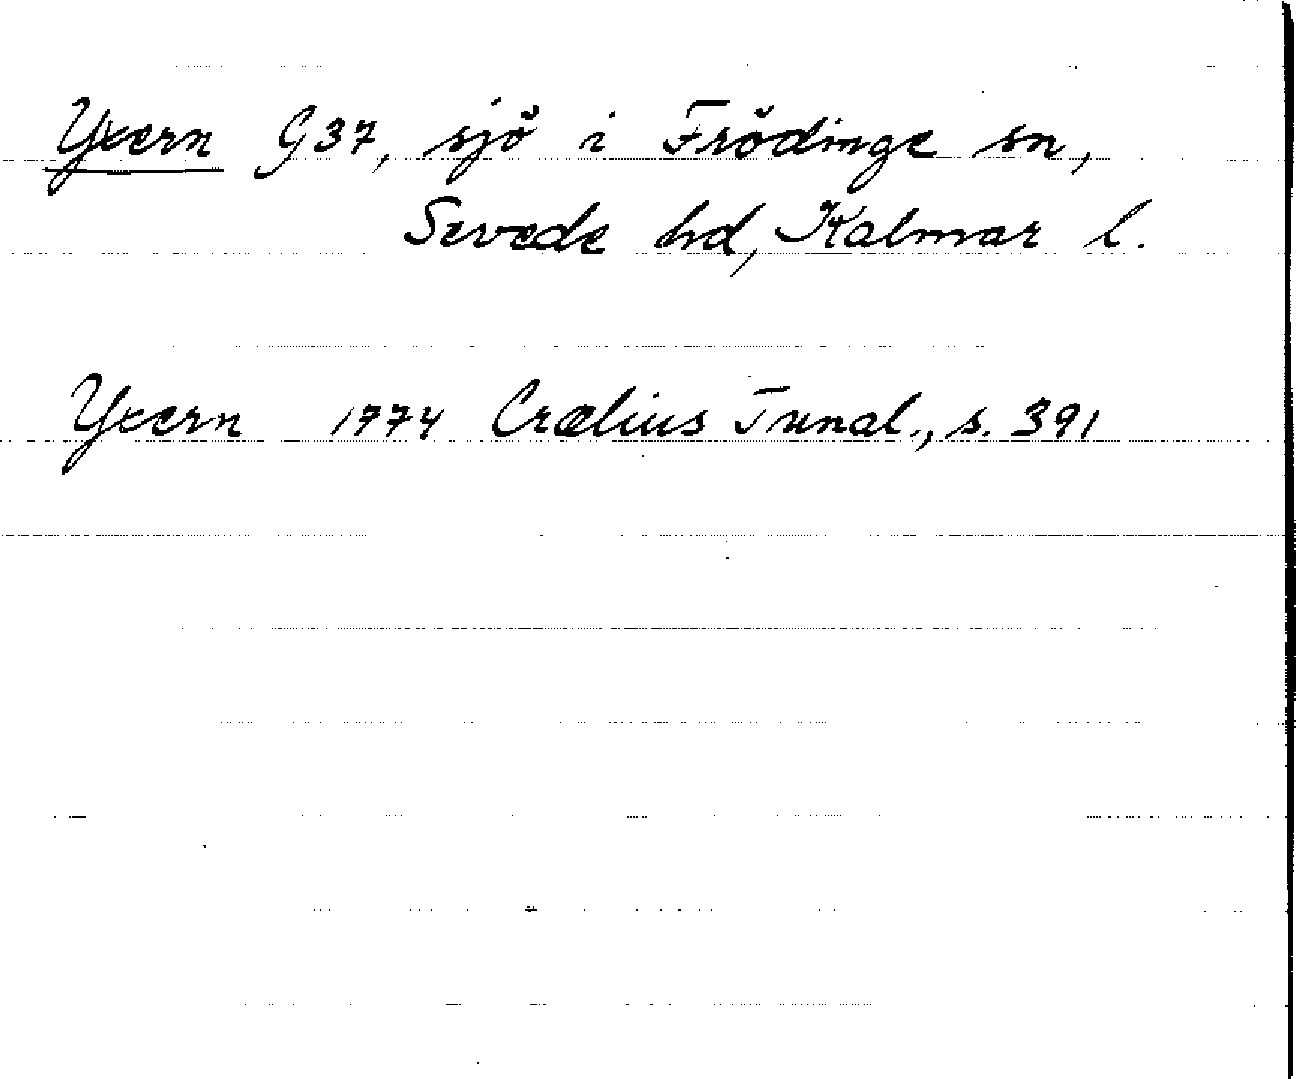 Yxern G37, sjö i Frödinge sn,
Sevede hd, Kalmar l.
Yxern 1774 Crælius Tunal., s. 391